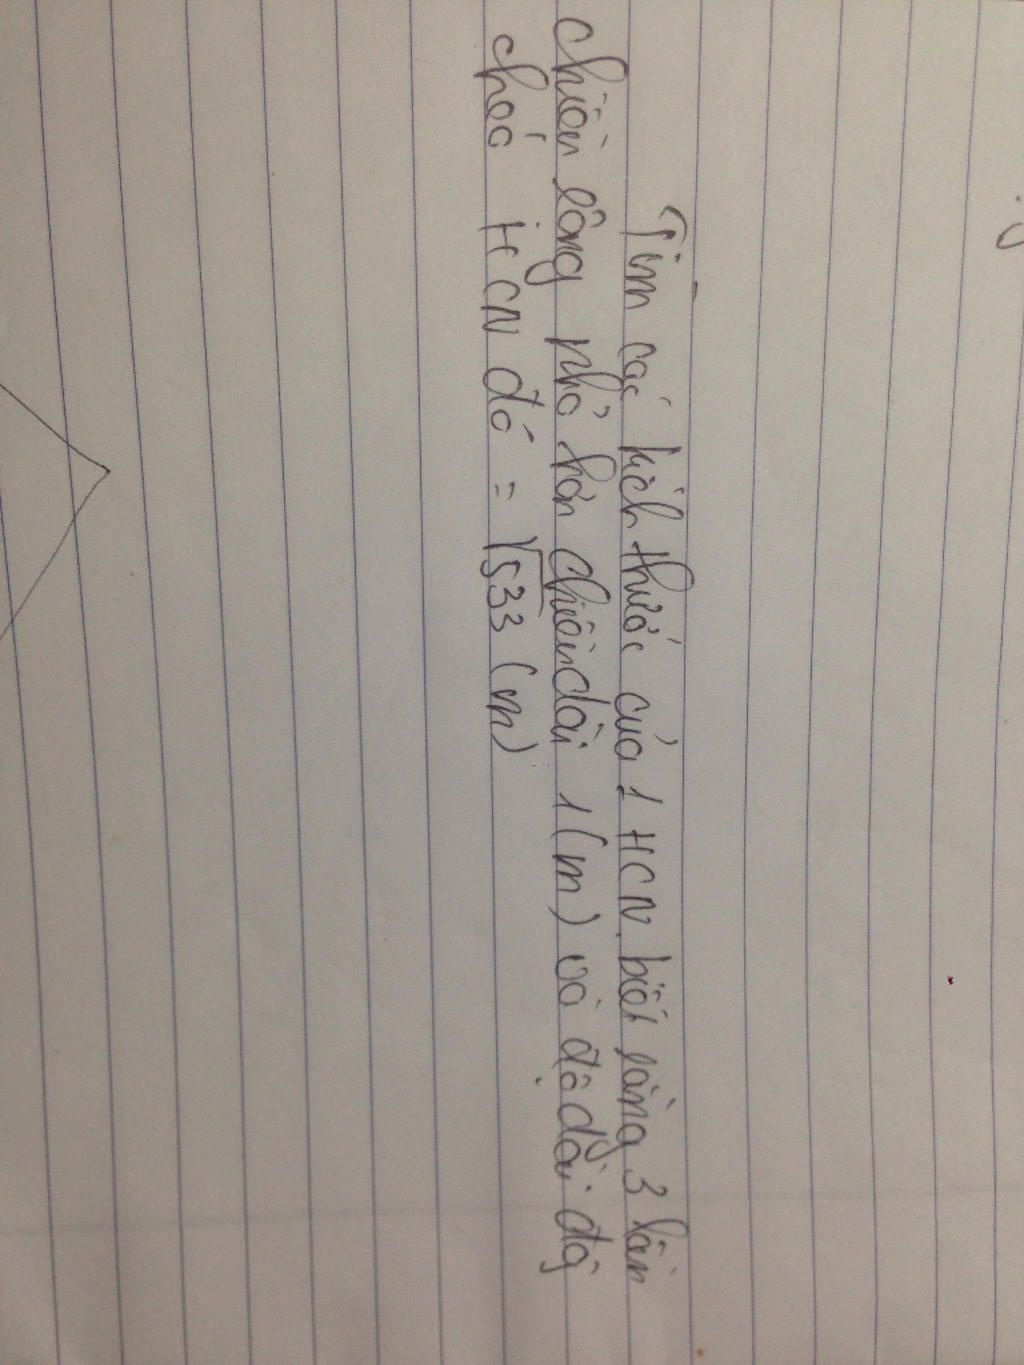 Tìm các kích thước của 1 HCN biết rằng 3 lần
chiều rộng nhỏ hơn chiều dài 1 (m) và độ dài đg
chéo HCN đó = √533 (m)